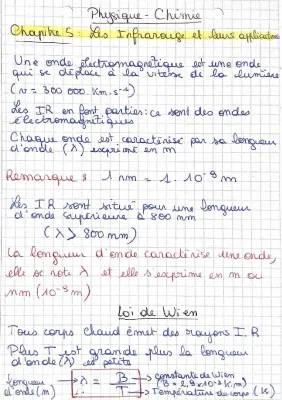 Physique - Chimie
Chapitre 5 : Les Infrarouge et leurs applications
Une onde électromagnétique est une onde
qui se déplace à la vitesse de la lumière
(v = 300 000 km.s⁻¹)
Les IR en font parties : ce sont des ondes
électromagnétiques
Chaque onde est caractérisé par sa longueur
d'onde (λ) exprimé en m
Remarque : 1 nm = 1.10⁻⁹ m
Les IR sont situé pour une longueur
d'onde supérieure à 800 nm
(λ > 800 nm)
La longueur d'onde caractérise une onde,
elle se note λ et elle s'exprime en m ou
nm (10⁻⁹ m)
Loi de Wien
Tous corps chaud émet des rayons I.R
Plus T est grande plus la longueur
d'onde (λ) est petite
Longueur d'onde (m) λ = B / T
constante de Wien
(B = 2,9 x 10⁻³ K.m)
Température du corps (K)